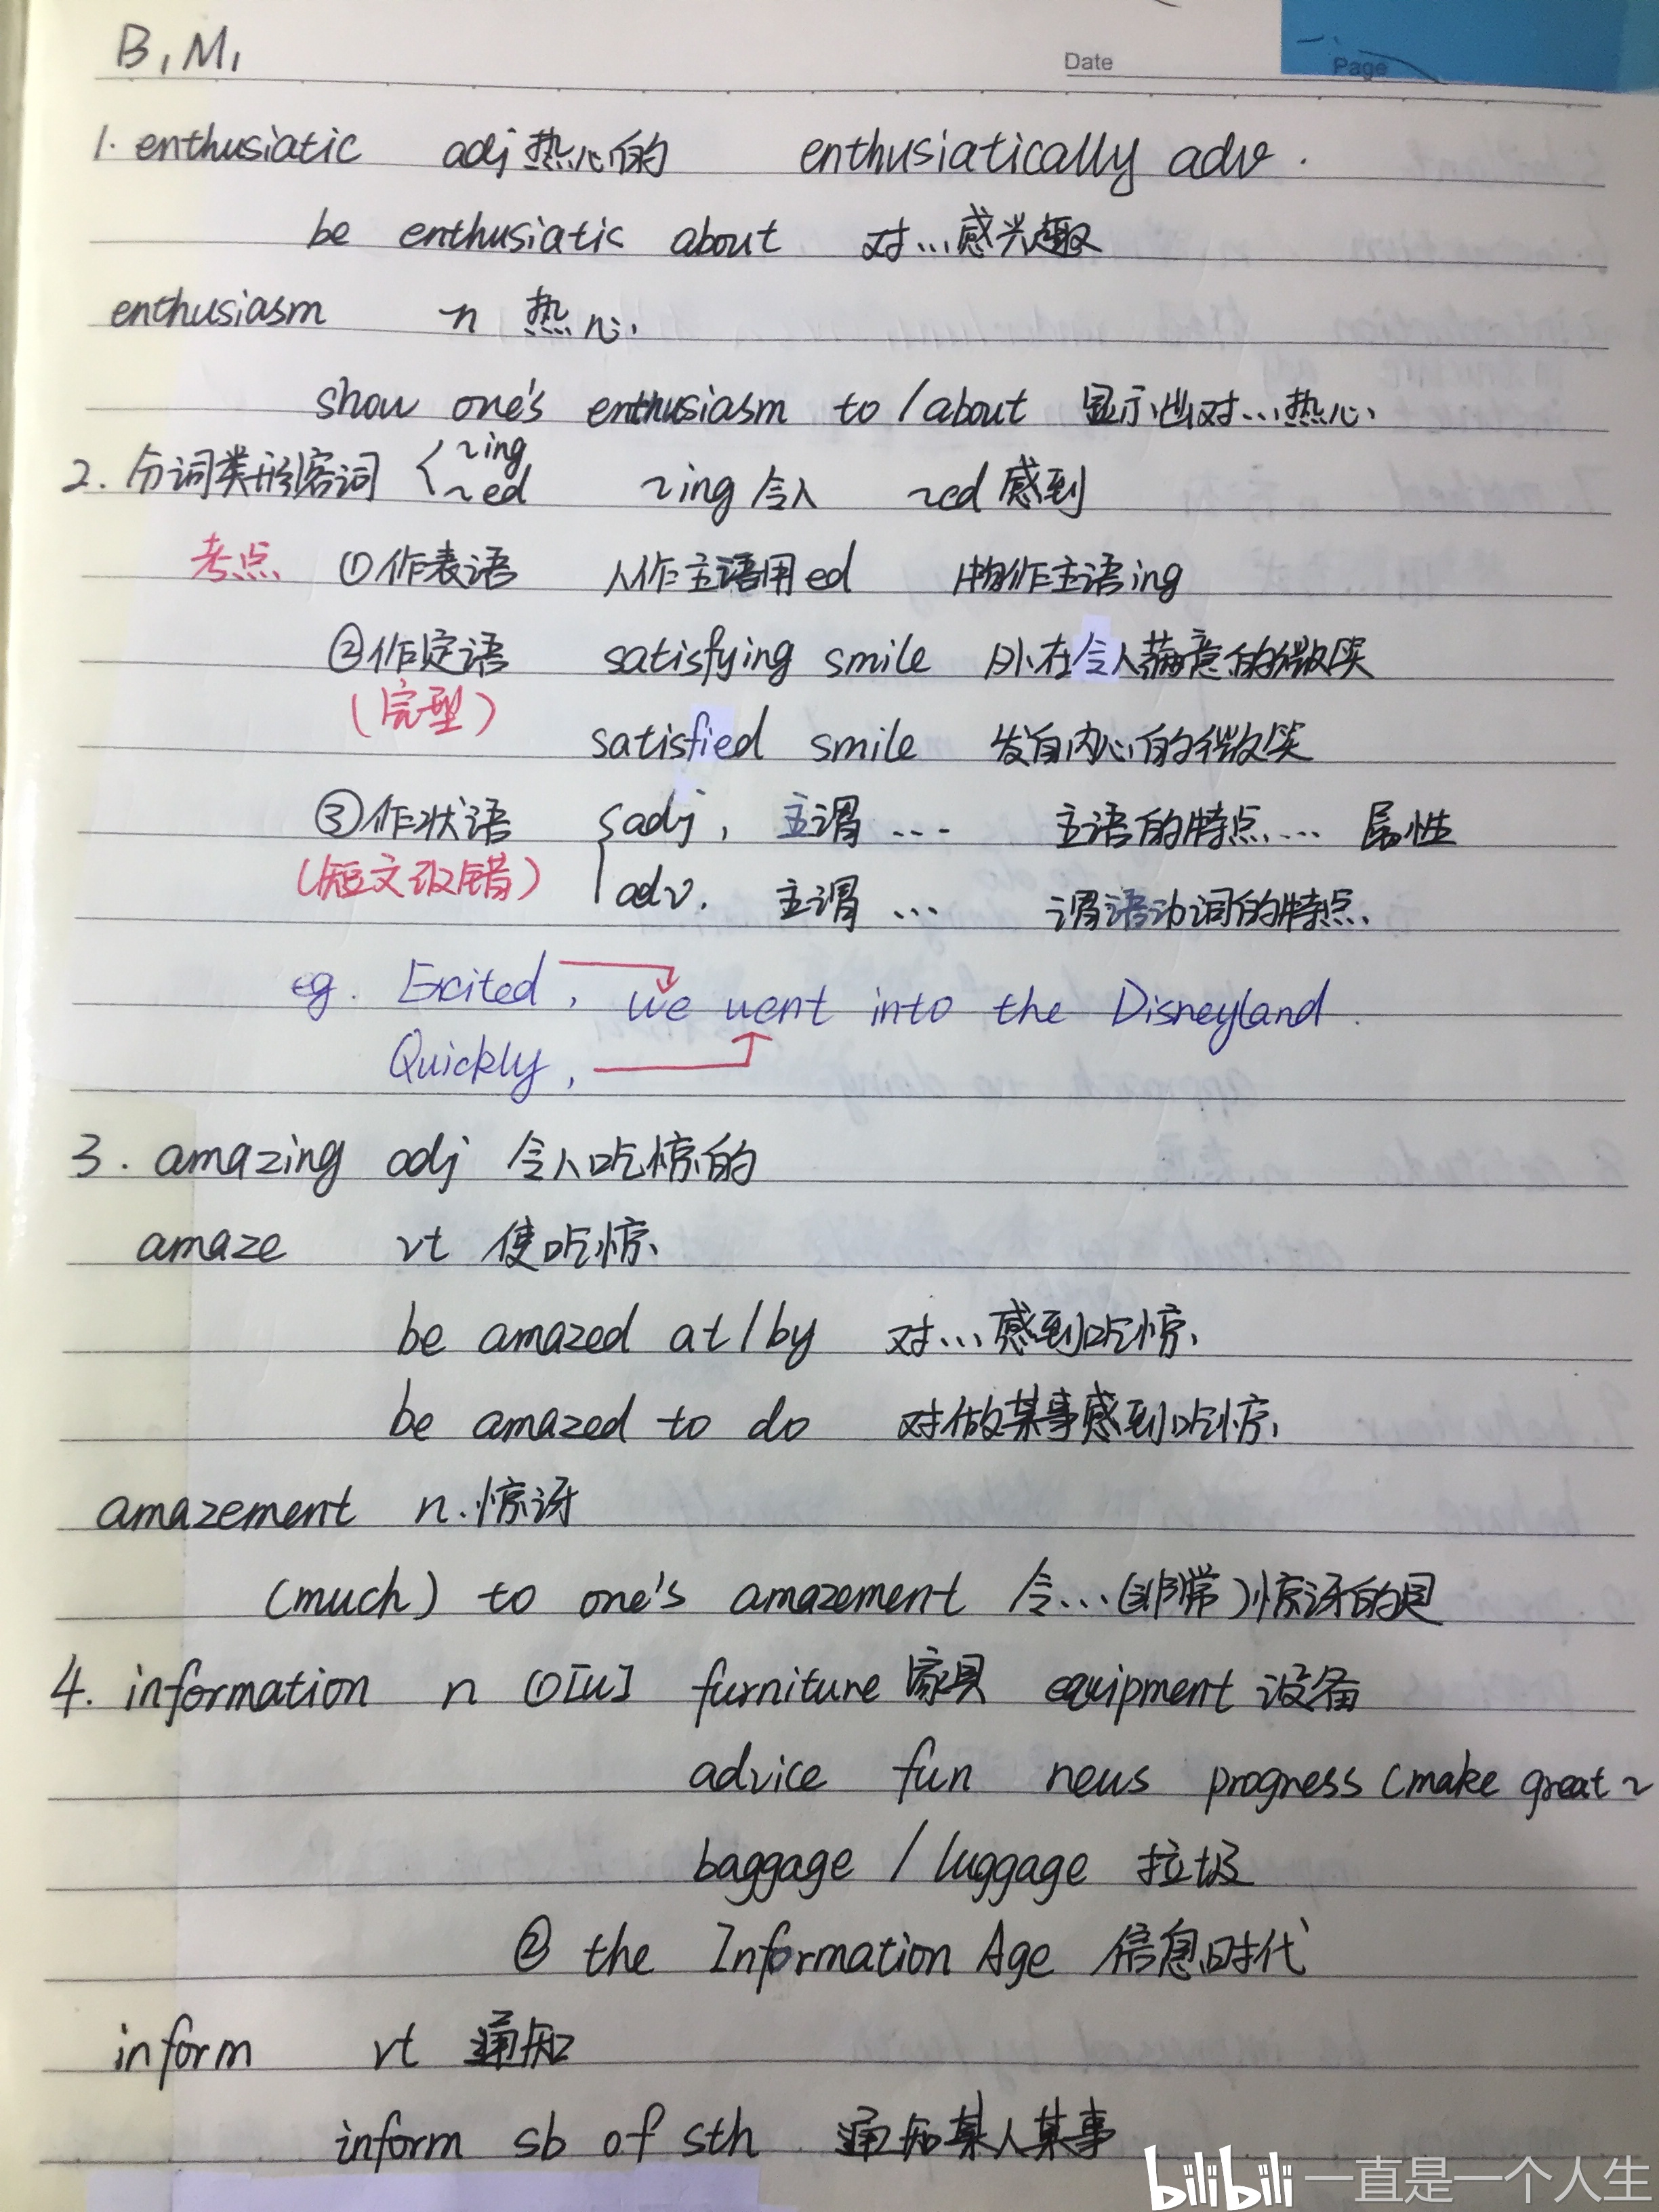 B1M1
Date
Page
1. enthusiatic adj 热心的 enthusiatically adv.
be enthusiatic about 对…感兴趣
enthusiasm n 热心
show one's enthusiasm to / about 显示出对…热心
2. 分词类形容词 { ~ing
~ed ~ing 令人 ~ed 感到
考点 ①作表语 人作主语用ed 物作主语ing
②作定语 satisfying smile 外在令人满意的微笑
(完型)
satisfied smile 发自内心的微笑
③作状语 { adj, 主谓 … 主语的特点… 属性
(短文改错) adv. 主谓 … 谓语动词的特点
eg. Excited, we went into the Disneyland.
Quickly,
3. amazing adj 令人吃惊的
amaze vt 使吃惊
be amazed at / by 对…感到吃惊
be amazed to do 对做某事感到吃惊
amazement n. 惊讶
(much) to one's amazement 令…(非常)惊讶的是
4. information n ①[u] furniture 家具 equipment 设备
advice fun news progress (make great ~
baggage / luggage 垃圾
② the Information Age 信息时代
inform vt 通知
inform sb of sth 通知某人某事
bilibili 一直是一个人生